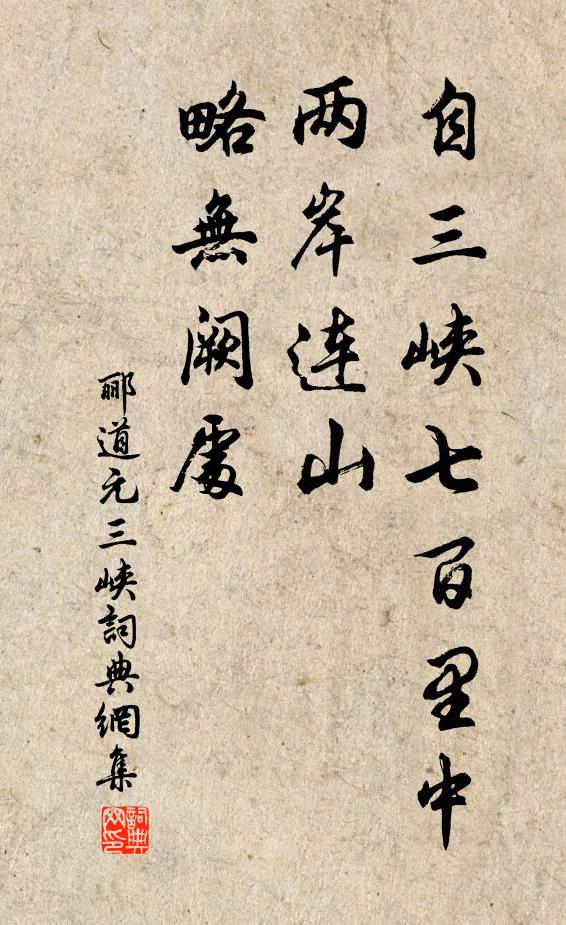 自三峡七百里中
两岸連山
略無阙處
酈道元三峡詞典網集
詞典
网印